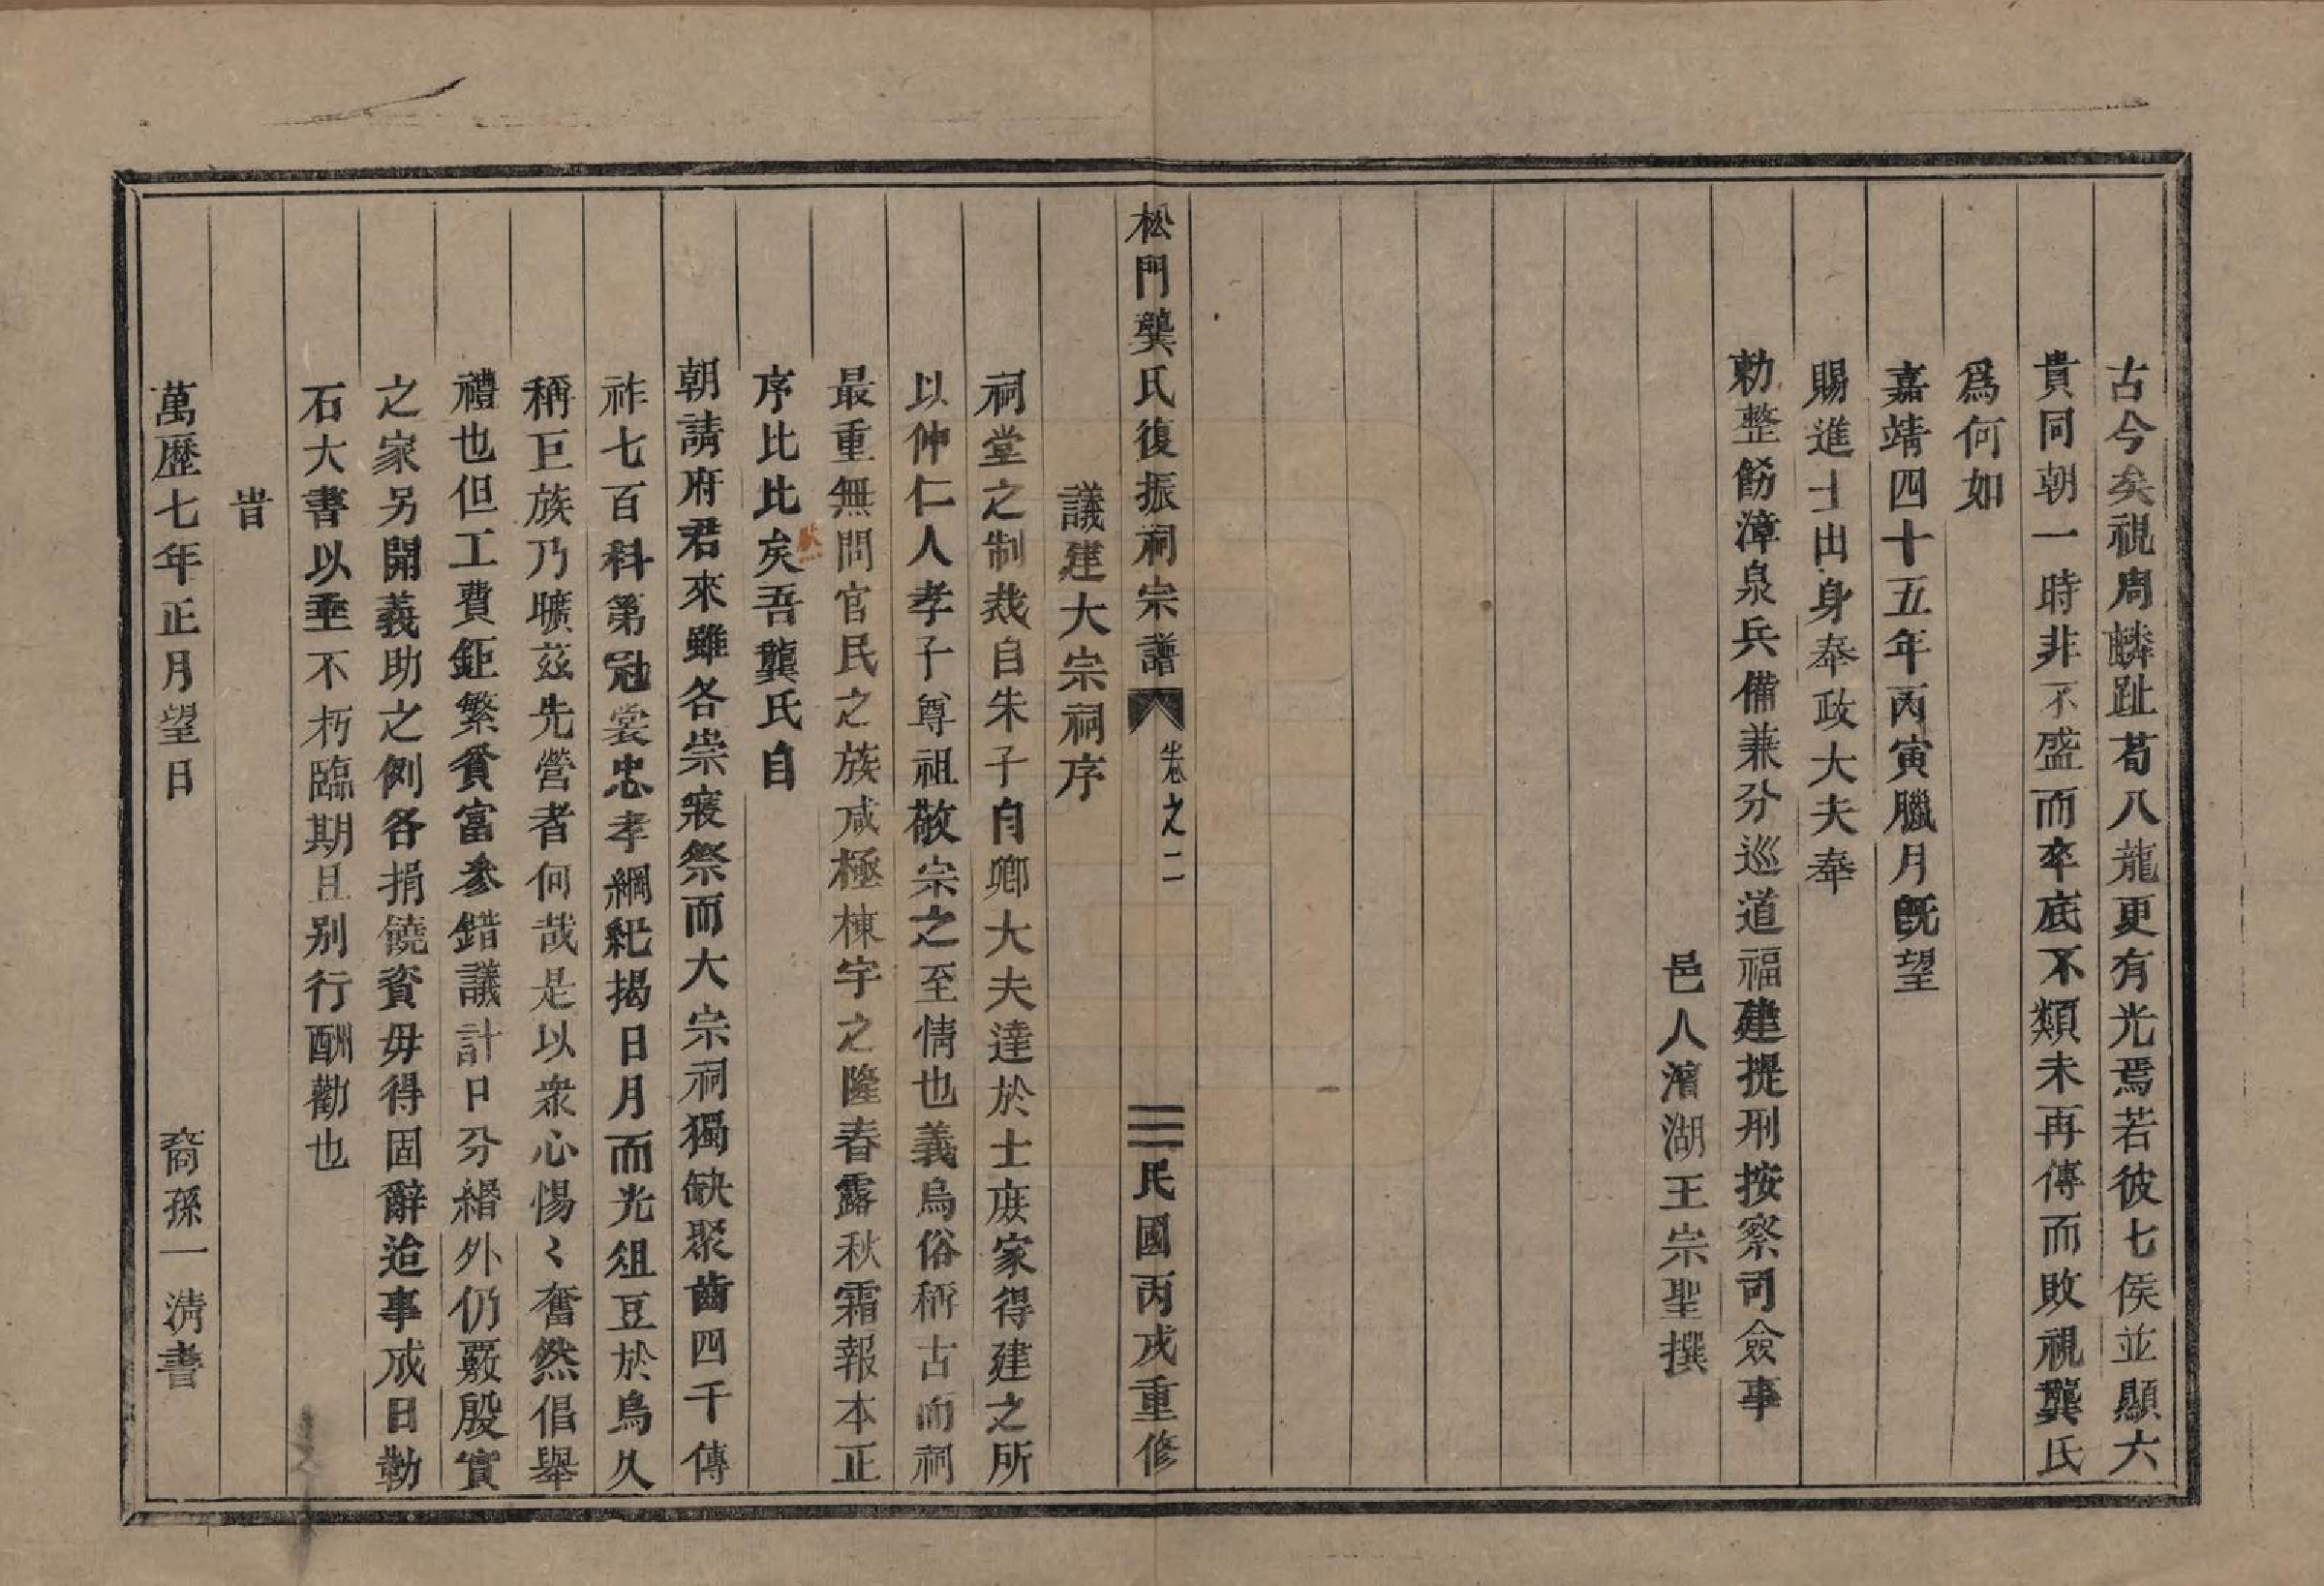 古今矣視周麟趾荀八龍更有光焉若彼七侯並顯六
貴同朝一時非不盛而卒底不類未再傳而敗視龔氏
爲何如
嘉靖四十五年丙寅臘月旣望
賜進士出身奉政大夫奉
勅整飭漳泉兵備兼分巡道福建提刑按察司僉事
邑人濳湖王宗聖撰
松門龔氏復振祠宗譜
卷之二
三
民國丙戌重修
議建大宗祠序
祠堂之制裁自朱子自鄉大夫達於士庶家得建之所
以伸仁人孝子尊祖敬宗之至情也義烏俗稱古而祠
最重無問官民之族咸極棟宇之隆春露秋霜報本正
序比比矣吾龔氏自
朝請府君來雖各崇寢祭而大宗祠獨缺聚齒四千傳
祚七百科第冠裳忠孝綱紀揭日月而光俎豆於烏久
稱巨族乃曠茲先營者何哉是以衆心惕〻奮然倡舉
禮也但工費鉅繁貧富參錯議計口分緡外仍覈殷實
之家另開義助之例各捐饒資毋得固辭迨事成日勒
石大書以垂不朽臨期且別行酬勸也
旹
萬歷七年正月望日
裔孫一淸書